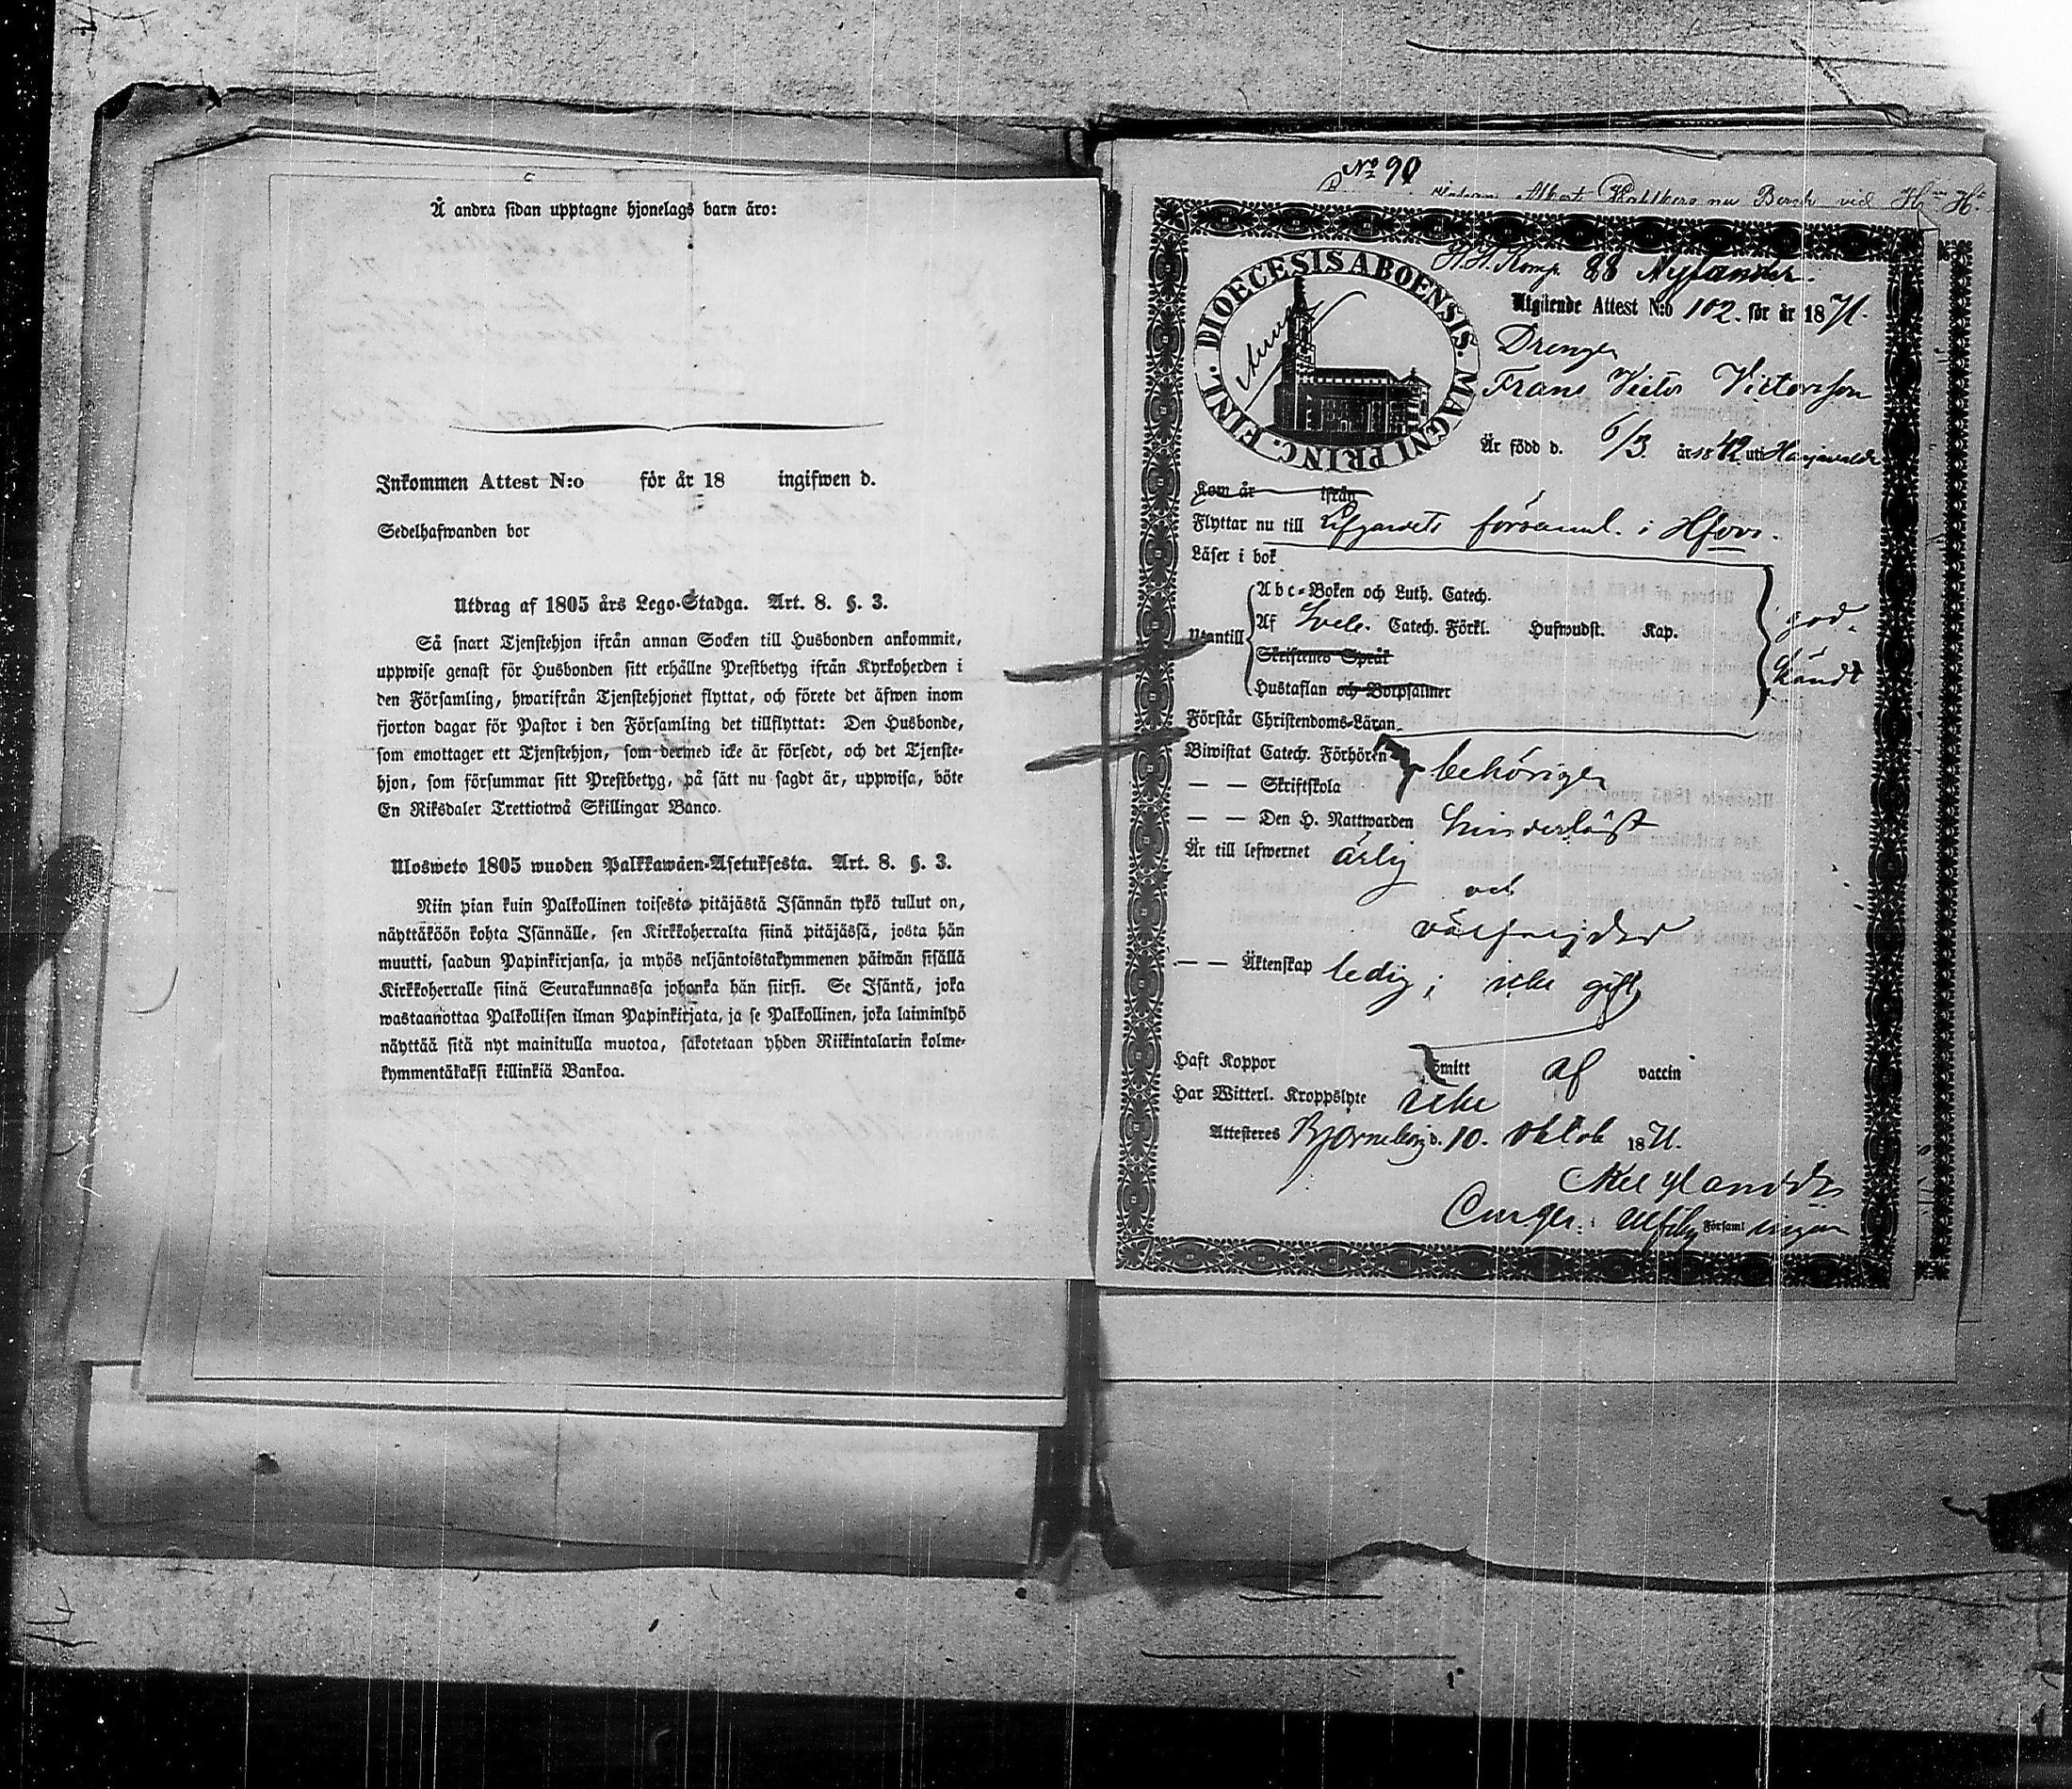 Å andra sidan upptagne hjonelags barn äro:
Inkommen Attest N:o för år 18 ingifwen d.
Sedelhafwanden bor
Utdrag af 1805 års Lego-Stadga. Art. 8. §. 3.
Så snart Tjenstehjon ifrån annan Socken till Husbonden ankommit,
uppwise genast för Husbonden sitt erhållne Prestbetyg ifrån Kyrkoherden i
den Församling, hwarifrån Tjenstehjonet flyttat, och förete det äfwen inom
fjorton dagar för Pastor i den Församling det tillflyttat: Den Husbonde,
som emottager ett Tjenstehjon, som dermed icke är försedt, och det Tjenste-
hjon, som försummar sitt Prestbetyg, på sätt nu sagdt är, uppwisa, böte
En Riksdaler Trettiotwå Skillingar Banco.
Ulosweto 1805 wuoden Palkkawäen-Asetuksesta. Art. 8. §. 3.
Niin pian kuin Palkollinen toisesta pitäjästä Isännän tykö tullut on,
näyttäköön kohta Isännälle, sen Kirkkoherralta siinä pitäjässä, josta hän
muutti, saadun Papinkirjansa, ja myös neljäntoistakymmenen päiwän sisällä
Kirkkoherralle siinä Seurakunnassa johonka hän siirsi. Se Isäntä, joka
wastaanottaa Palkollisen ilman Papinkirjata, ja se Palkollinen, joka laiminlyö
näyttää sitä nyt mainitulla muotoa, sakotetaan yhden Riikintalarin kolme-
kymmentäkaksi killinkiä Bankoa.
No 90
Albert nu Bersh vid
DIOECESIS ABOENSIS. MAGNI PRINC. FINL.
Komp. 88 Nylander.
Utgående Attest N:o 102. för år 1871.
Drengen
Frans Victor Victorsson
Är född d. 6/3 år 1842 uti Harjavalda
Kom år ifrån
Flyttar nu till Lifgardets församl. i Hfors.
Läser i bok
Abc-Boken och Luth. Catech.
Utantill Af Sveb. Catech. Förkl. Hufwudst. Kap.
god-
Skriftenes Språk
kändt
Hustaflan och Botpsalmer
Förstår Christendoms-Läran
Biwistat Catech. Förhören behörigen
— — Skriftskola
— — Den H. Nattwarden hinderlöst
Är till lefwernet ärlig
och
välfrejdad
— — Äktenskap ledig; icke gift
Haft Koppor Smitt af vaccin
Har Witterl. Kroppslyte icke
Attesteres Björneborg d. 10. Oktob 1871.
Nylander
i Ulfsby Församl ingen